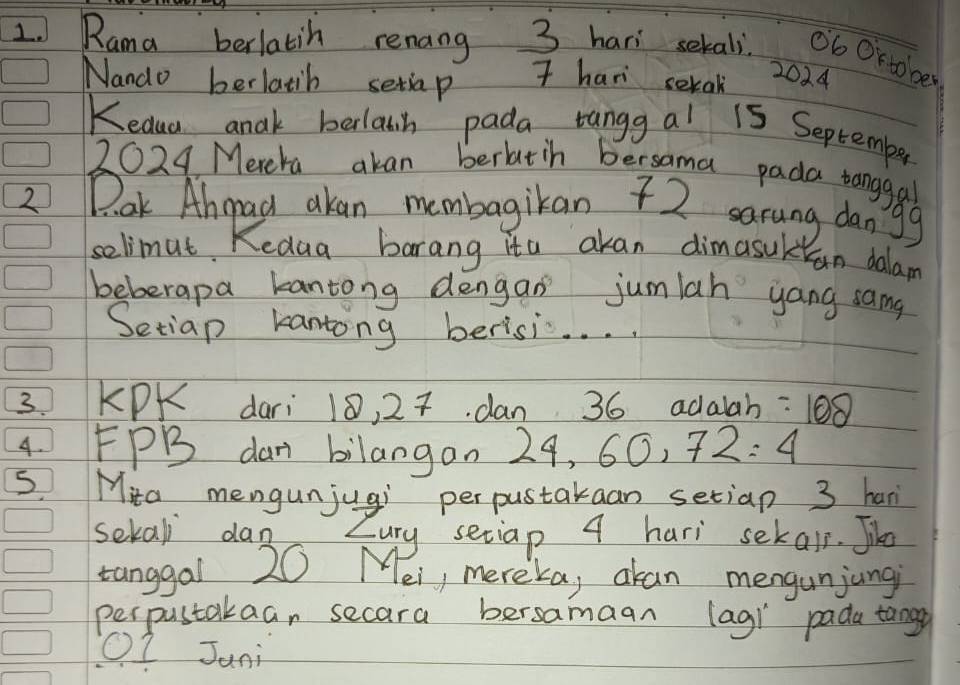 1. Rama berlatih renang 3 hari sekali. 06 Oktober
Nando berlatih setiap 7 hari sekali 2024
Kedua anak berlatih pada tanggal 15 September
2024. Mereka akan berlatih bersama pada tanggal
2 Pak Ahmad akan membagikan 72 sarung dan 99
selimut. Kedua barang itu akan dimasukkan dalam
beberapa kantong dengan jumlah yang sama
Setiap kantong berisi....
3. KPK dari 18,27 .dan 36 adalah = 108
4. FPB dari bilangan 24, 60, 72 = 4
5. Mita mengunjugi perpustakaan setiap 3 hari
sekali dan Zury setiap 4 hari sekali. Jika
tanggal 20 Mei, mereka, akan mengunjungi
perpustakaan secara bersamaan lagi pada tangg
01 Juni